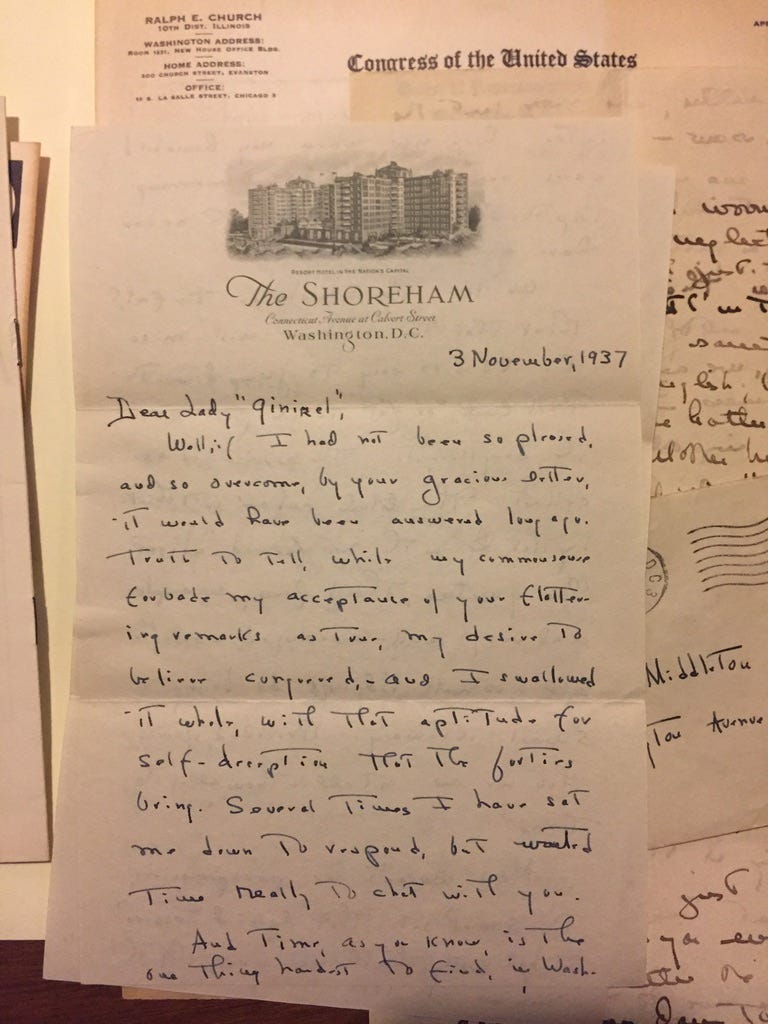 RALPH E. CHURCH
10TH DIST. ILLINOIS
WASHINGTON ADDRESS:
ROOM 1231, NEW HOUSE OFFICE BLDG.
HOME ADDRESS:
300 CHURCH STREET, EVANSTON
OFFICE:
S. LA SALLE STREET, CHICAGO 3
Congress of the United States
RESORT HOTEL IN THE NATION'S CAPITAL
The SHOREHAM
Connecticut Avenue at Calvert Street
Washington, D.C.
3 November, 1937
Dear Lady
Well, if I had not been so pleased,
and so overcome, by your gracious letter,
it would have been answered long ago.
Truth to tell, while my commonsense
forbade my acceptance of your flatter-
ing remarks as true, my desire to
believe conquered, - and I swallowed
it whole, with that aptitude for
self-deception that the forties
bring. Several times I have sat
me down to respond, but wanted
time really to chat with you.
And time, as you know, is the
one thing hardest to find, in Wash-
neglect
Middleton
Avenue
just